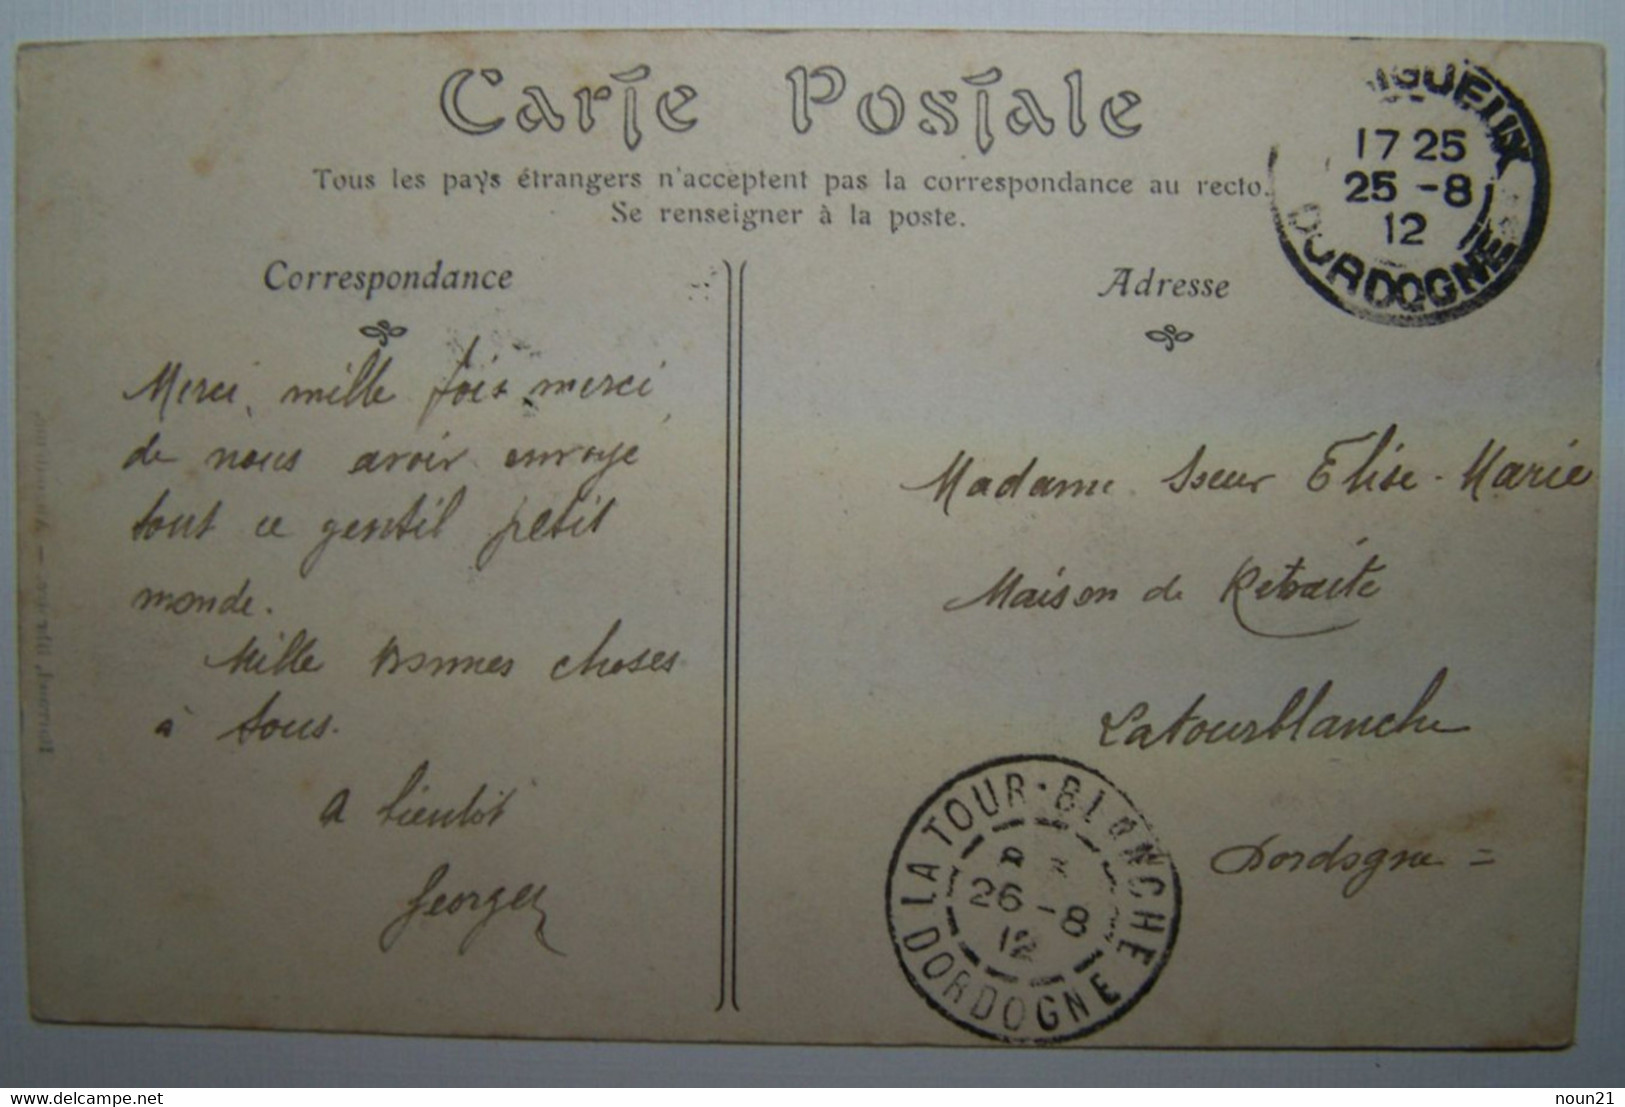 Carte Postale
Tous les pays étrangers n'acceptent pas la correspondance au recto.
Se renseigner à la poste.
Correspondance
Merci, mille fois merci
de nous avoir envoye
tout ce gentil petit
monde.
Mille Bonnes choses
à tous.
A bientôt
Georges
Adresse
Madame Sœur Elise-Marie
Maison de Retraite
Latourblanche
Dordogne =
IGUEUX
17 25
25 -8
12
DORDOGNE
LA TOUR-BLANCHE
26 -8
12
DORDOGNE
delcampe.net
noun21